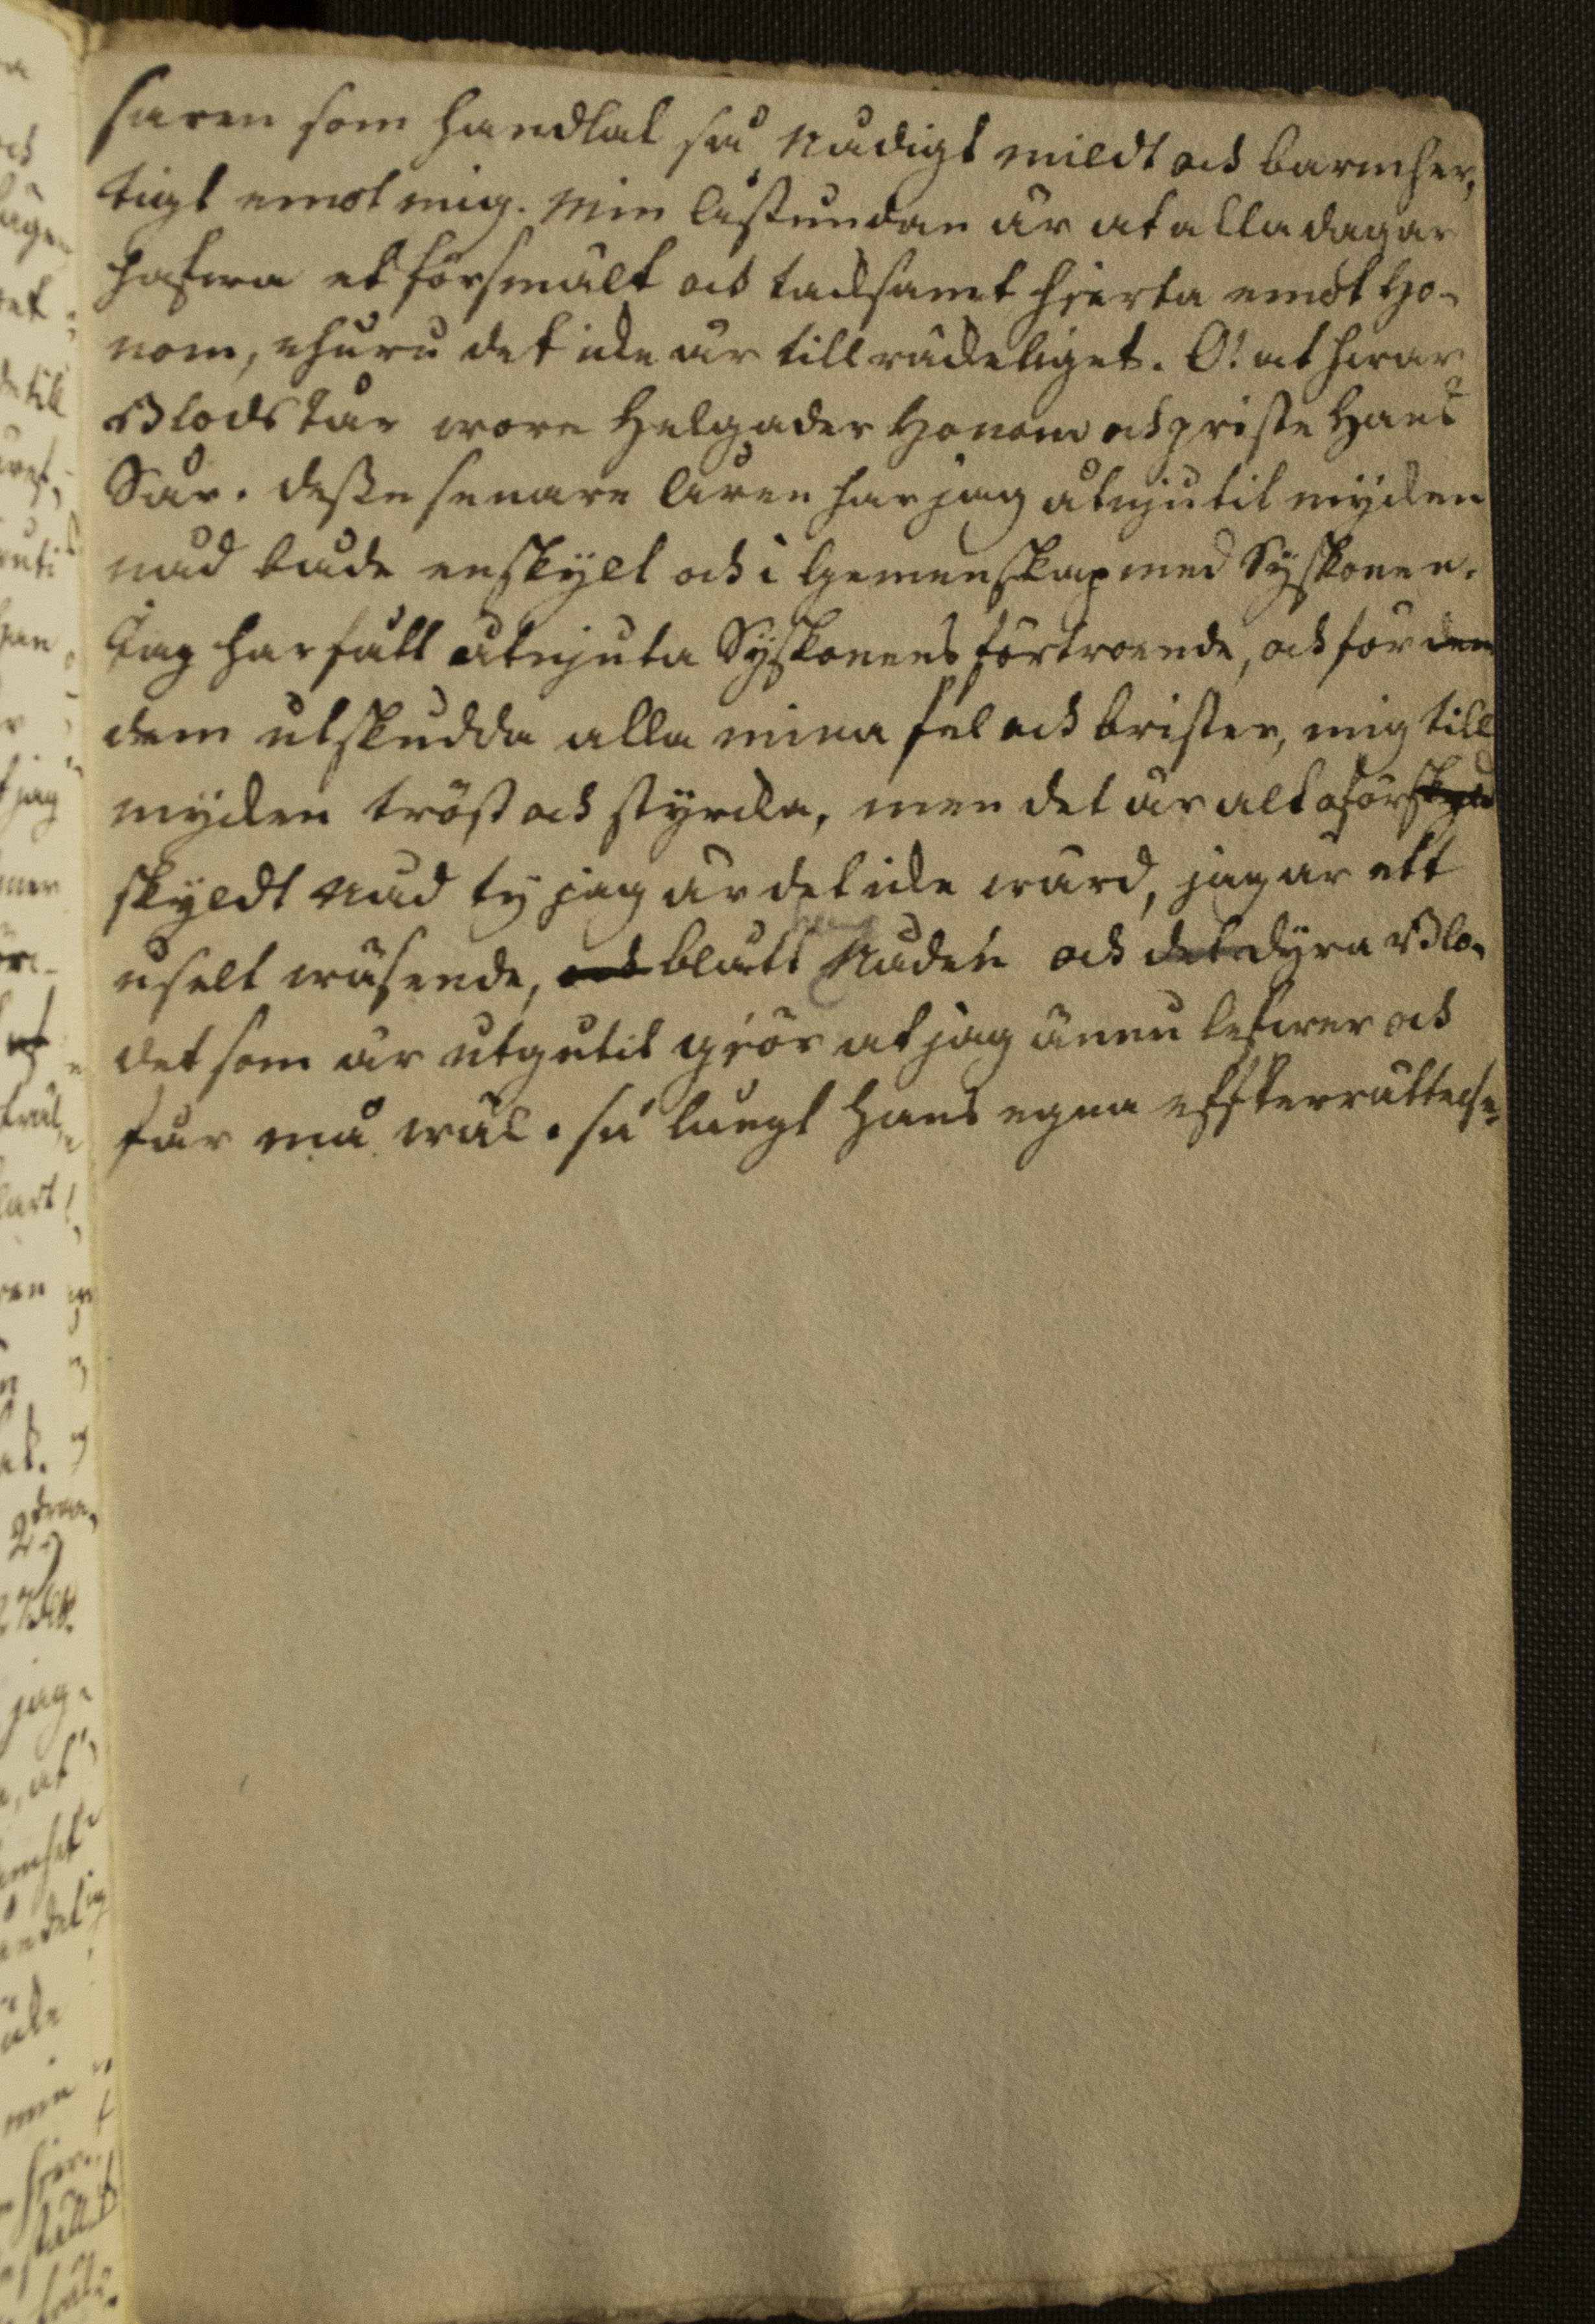 saren som handlat så Nådigt mildt och barmher,
tigt emot mig. Min åstundan är at alla dagar
hafwa et försmält och tacksamt hjerta emot Ho-
nom, ehuru det icke är tillräckeliget. O! at hwar
Blods tår wore Helgader Honom och priste Hans
Sår. Desse senare åren har jag åtnjutit mycken
nåd både enskylt och i Gemenskap med Syskonen.
Jag har fått åtnjuta Syskonens förtroende, och för den
dem utskudda alla mina fel och brister, mig till
mycken tröst och styrcka, men det är alt oförskyld
skyldt Nåd ty jag är det icke wärd, jag är ett
uselt wäsende, och blott Nåden och det dyra Blo-
det som är utgutit gjör at jag ännu lefwer och
får må wäl. Så långt Hans egna efterrättelse,